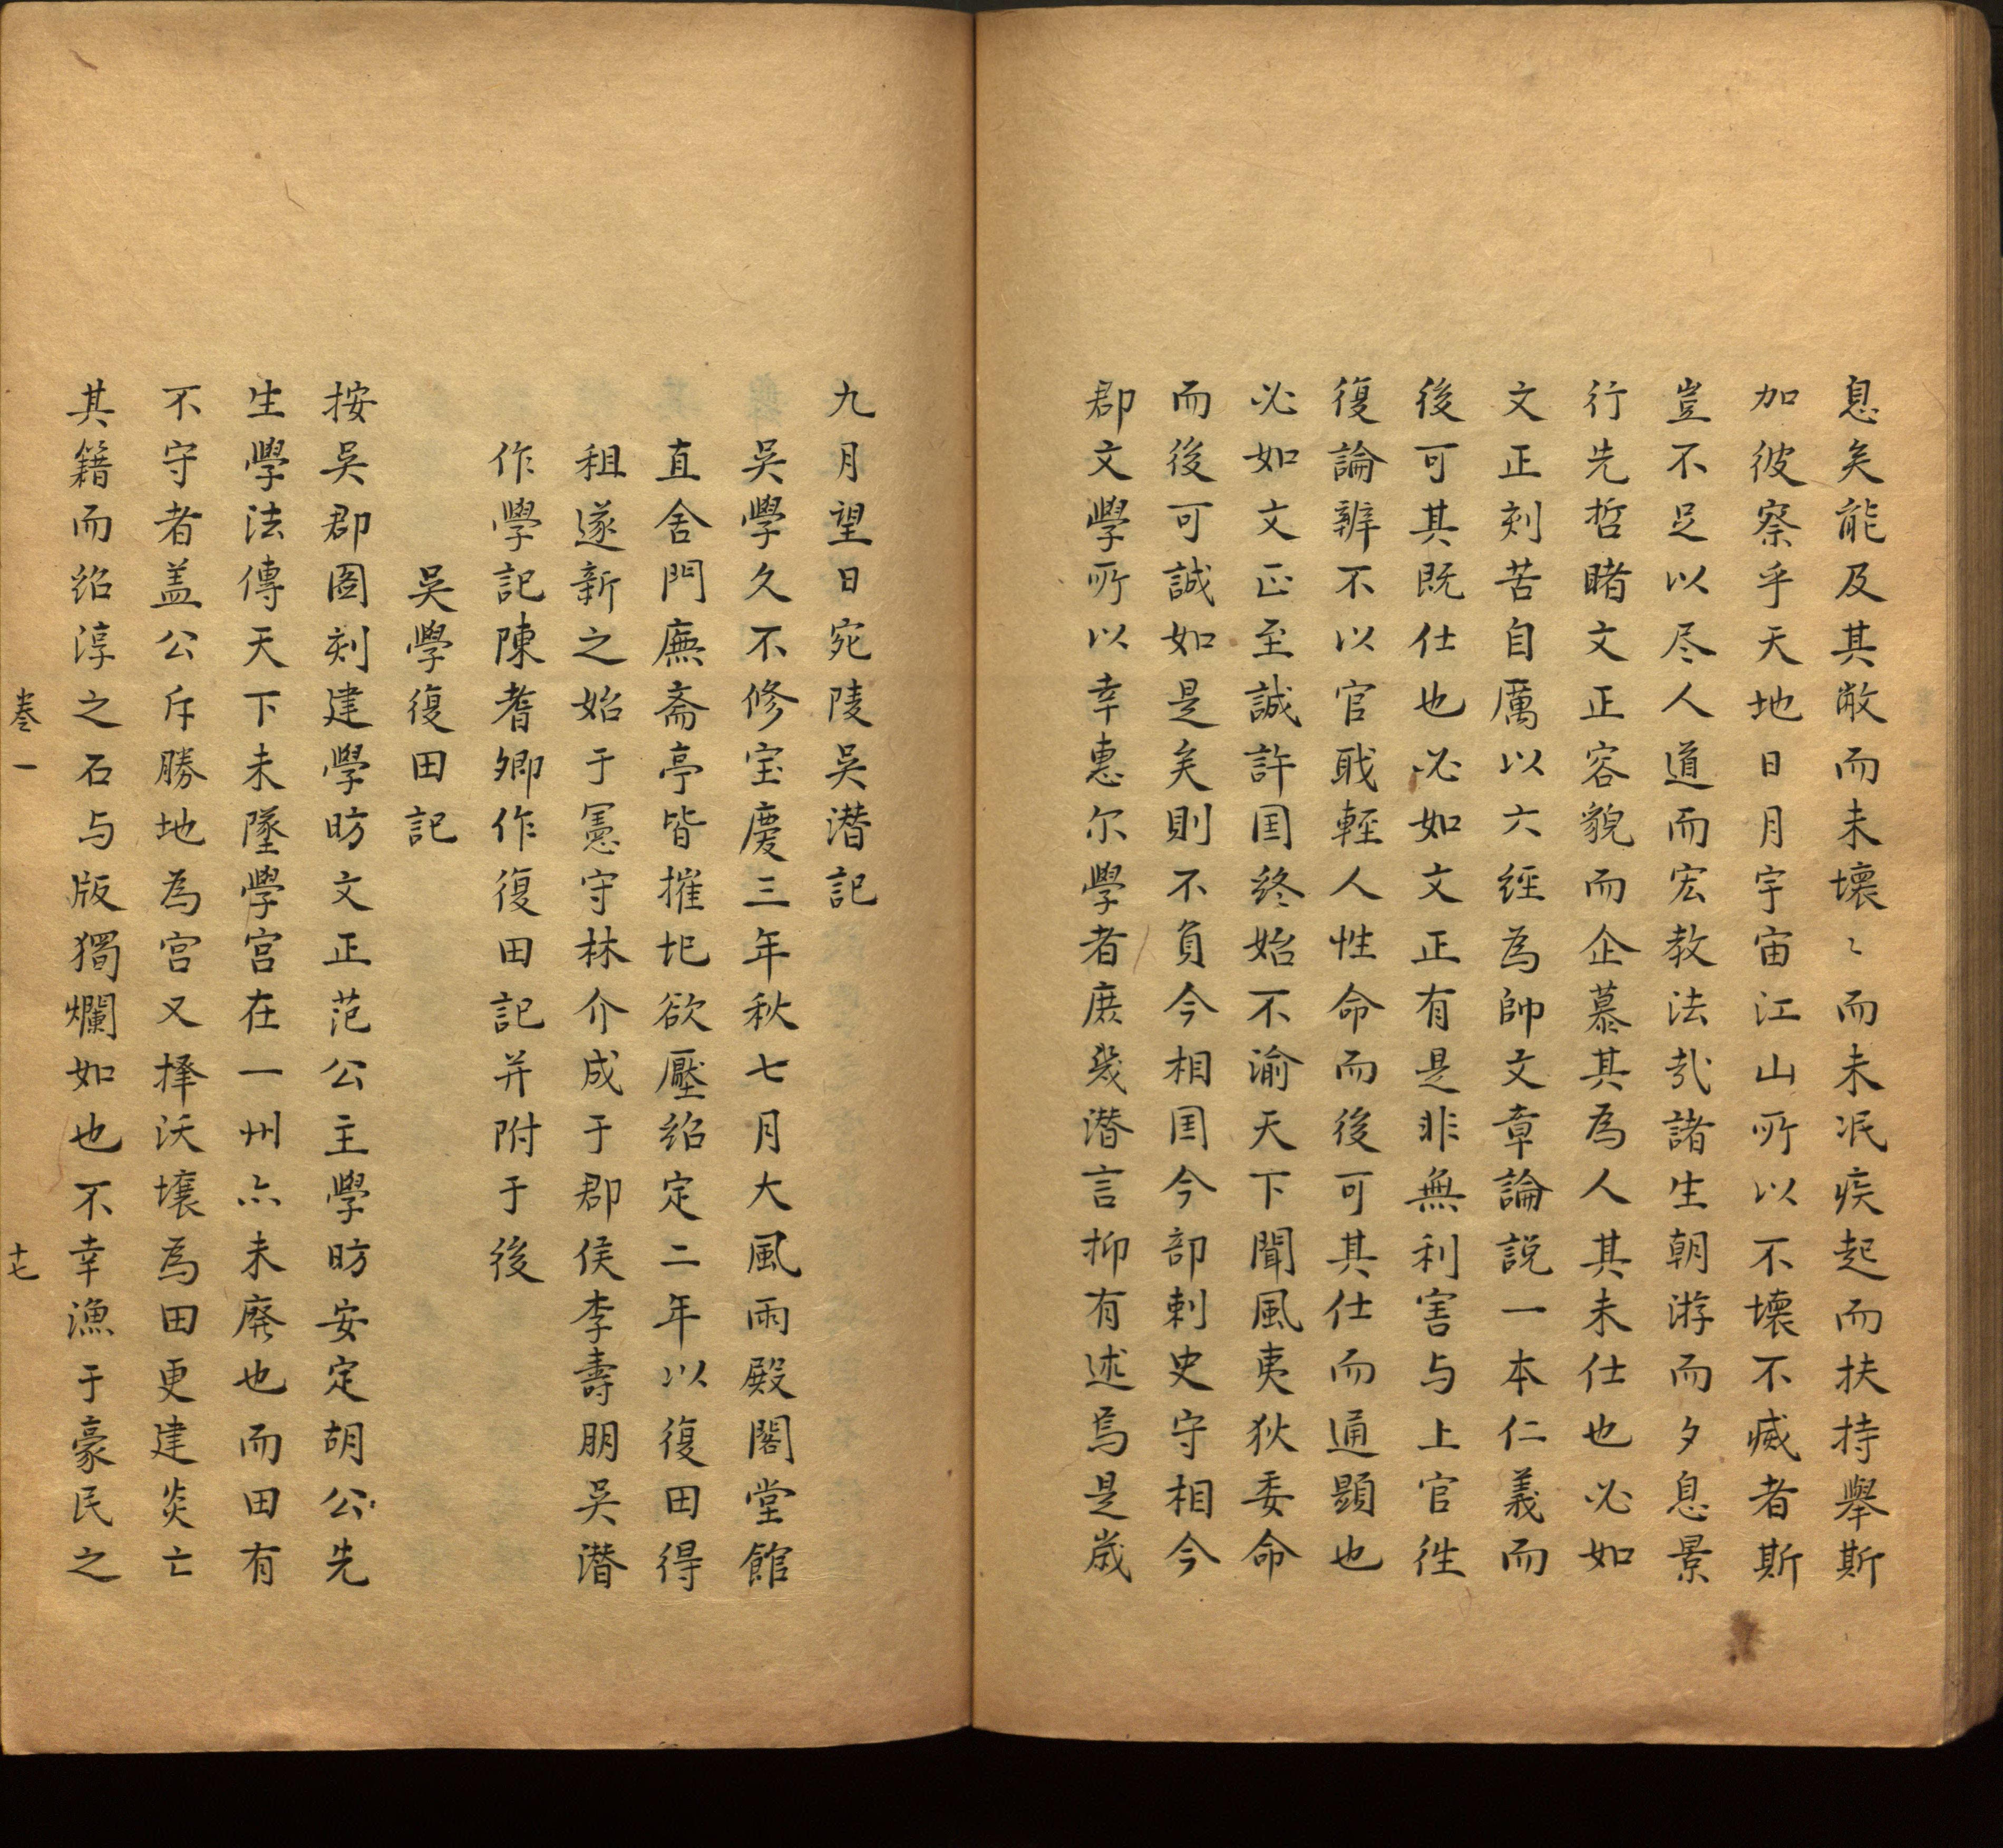 息矣能及其敝而未壞〻而未泯疾起而扶持舉斯
加彼察乎天地日月宇宙江山所以不壞不㓕者斯
豈不足以尽人道而宏教法㢤諸生朝游而夕息景
行先哲睹文正容貌而企慕其為人其未仕也必如
文正刻苦自厲以六經為帥文章論説一本仁義而
後可其既仕也必如文正有是非無利害与上官徃
復論辨不以官戝輕人性命而後可其仕而通顕也
必如文正至誠許囯終始不渝天下聞風夷狄委命
而後可誠如是矣則不負今相囯今部剌史守相今
郡文學所以幸惠尔學者庻㡬潛言抑有述焉是歲
九月望日宛陵吳潛記
吳學久不修宝慶三年秋七月大風雨殿閣堂館
直舍門廡斋亭皆摧圯欲壓紹定二年以復田得
租遂新之始于憲守林介成于郡侯李壽朋吳潛
作學記陳耆卿作復田記并附于後
吳學復田記
按吳郡圖刻建學昉文正范公主學昉安定胡公先
生學法傳天下未墜學宮在一州亦未廢也而田有
不守者盖公斥勝地為宮又择沃壤為田更建炎亡
其籍而紹淳之石与版獨爛如也不幸漁于豪民之
卷一 十七